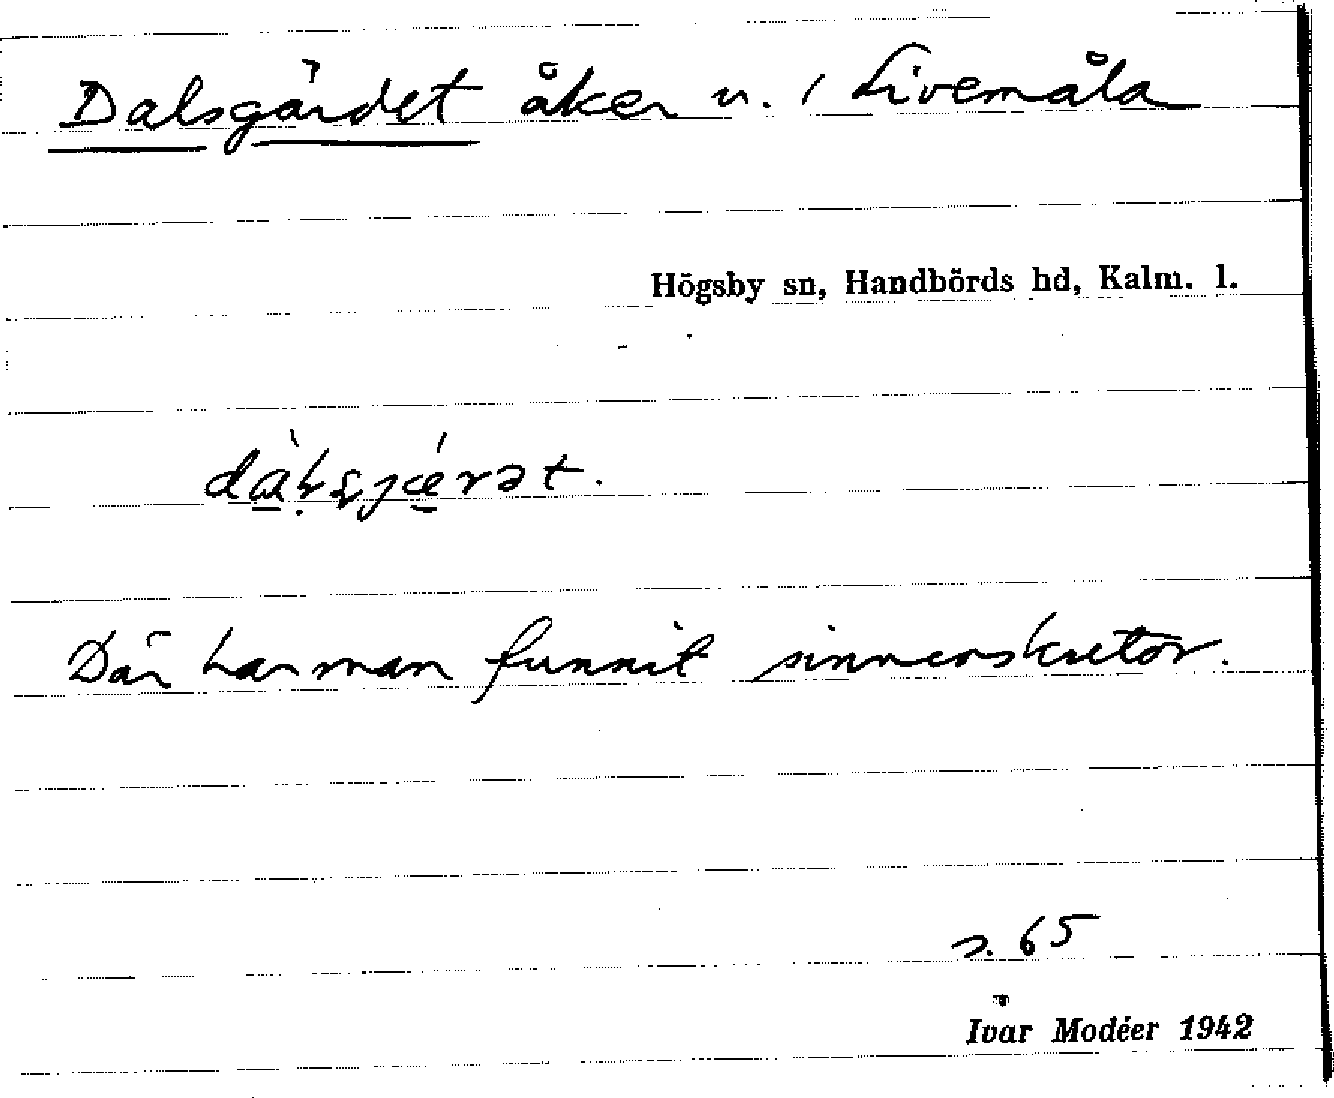 Dalsgärdet åker n. / Livemåla
Högsby sn, Handbörds hd, Kalm. l.
Där har man funnit sinnerskutor.
s. 65
Ivar Modéer 1942